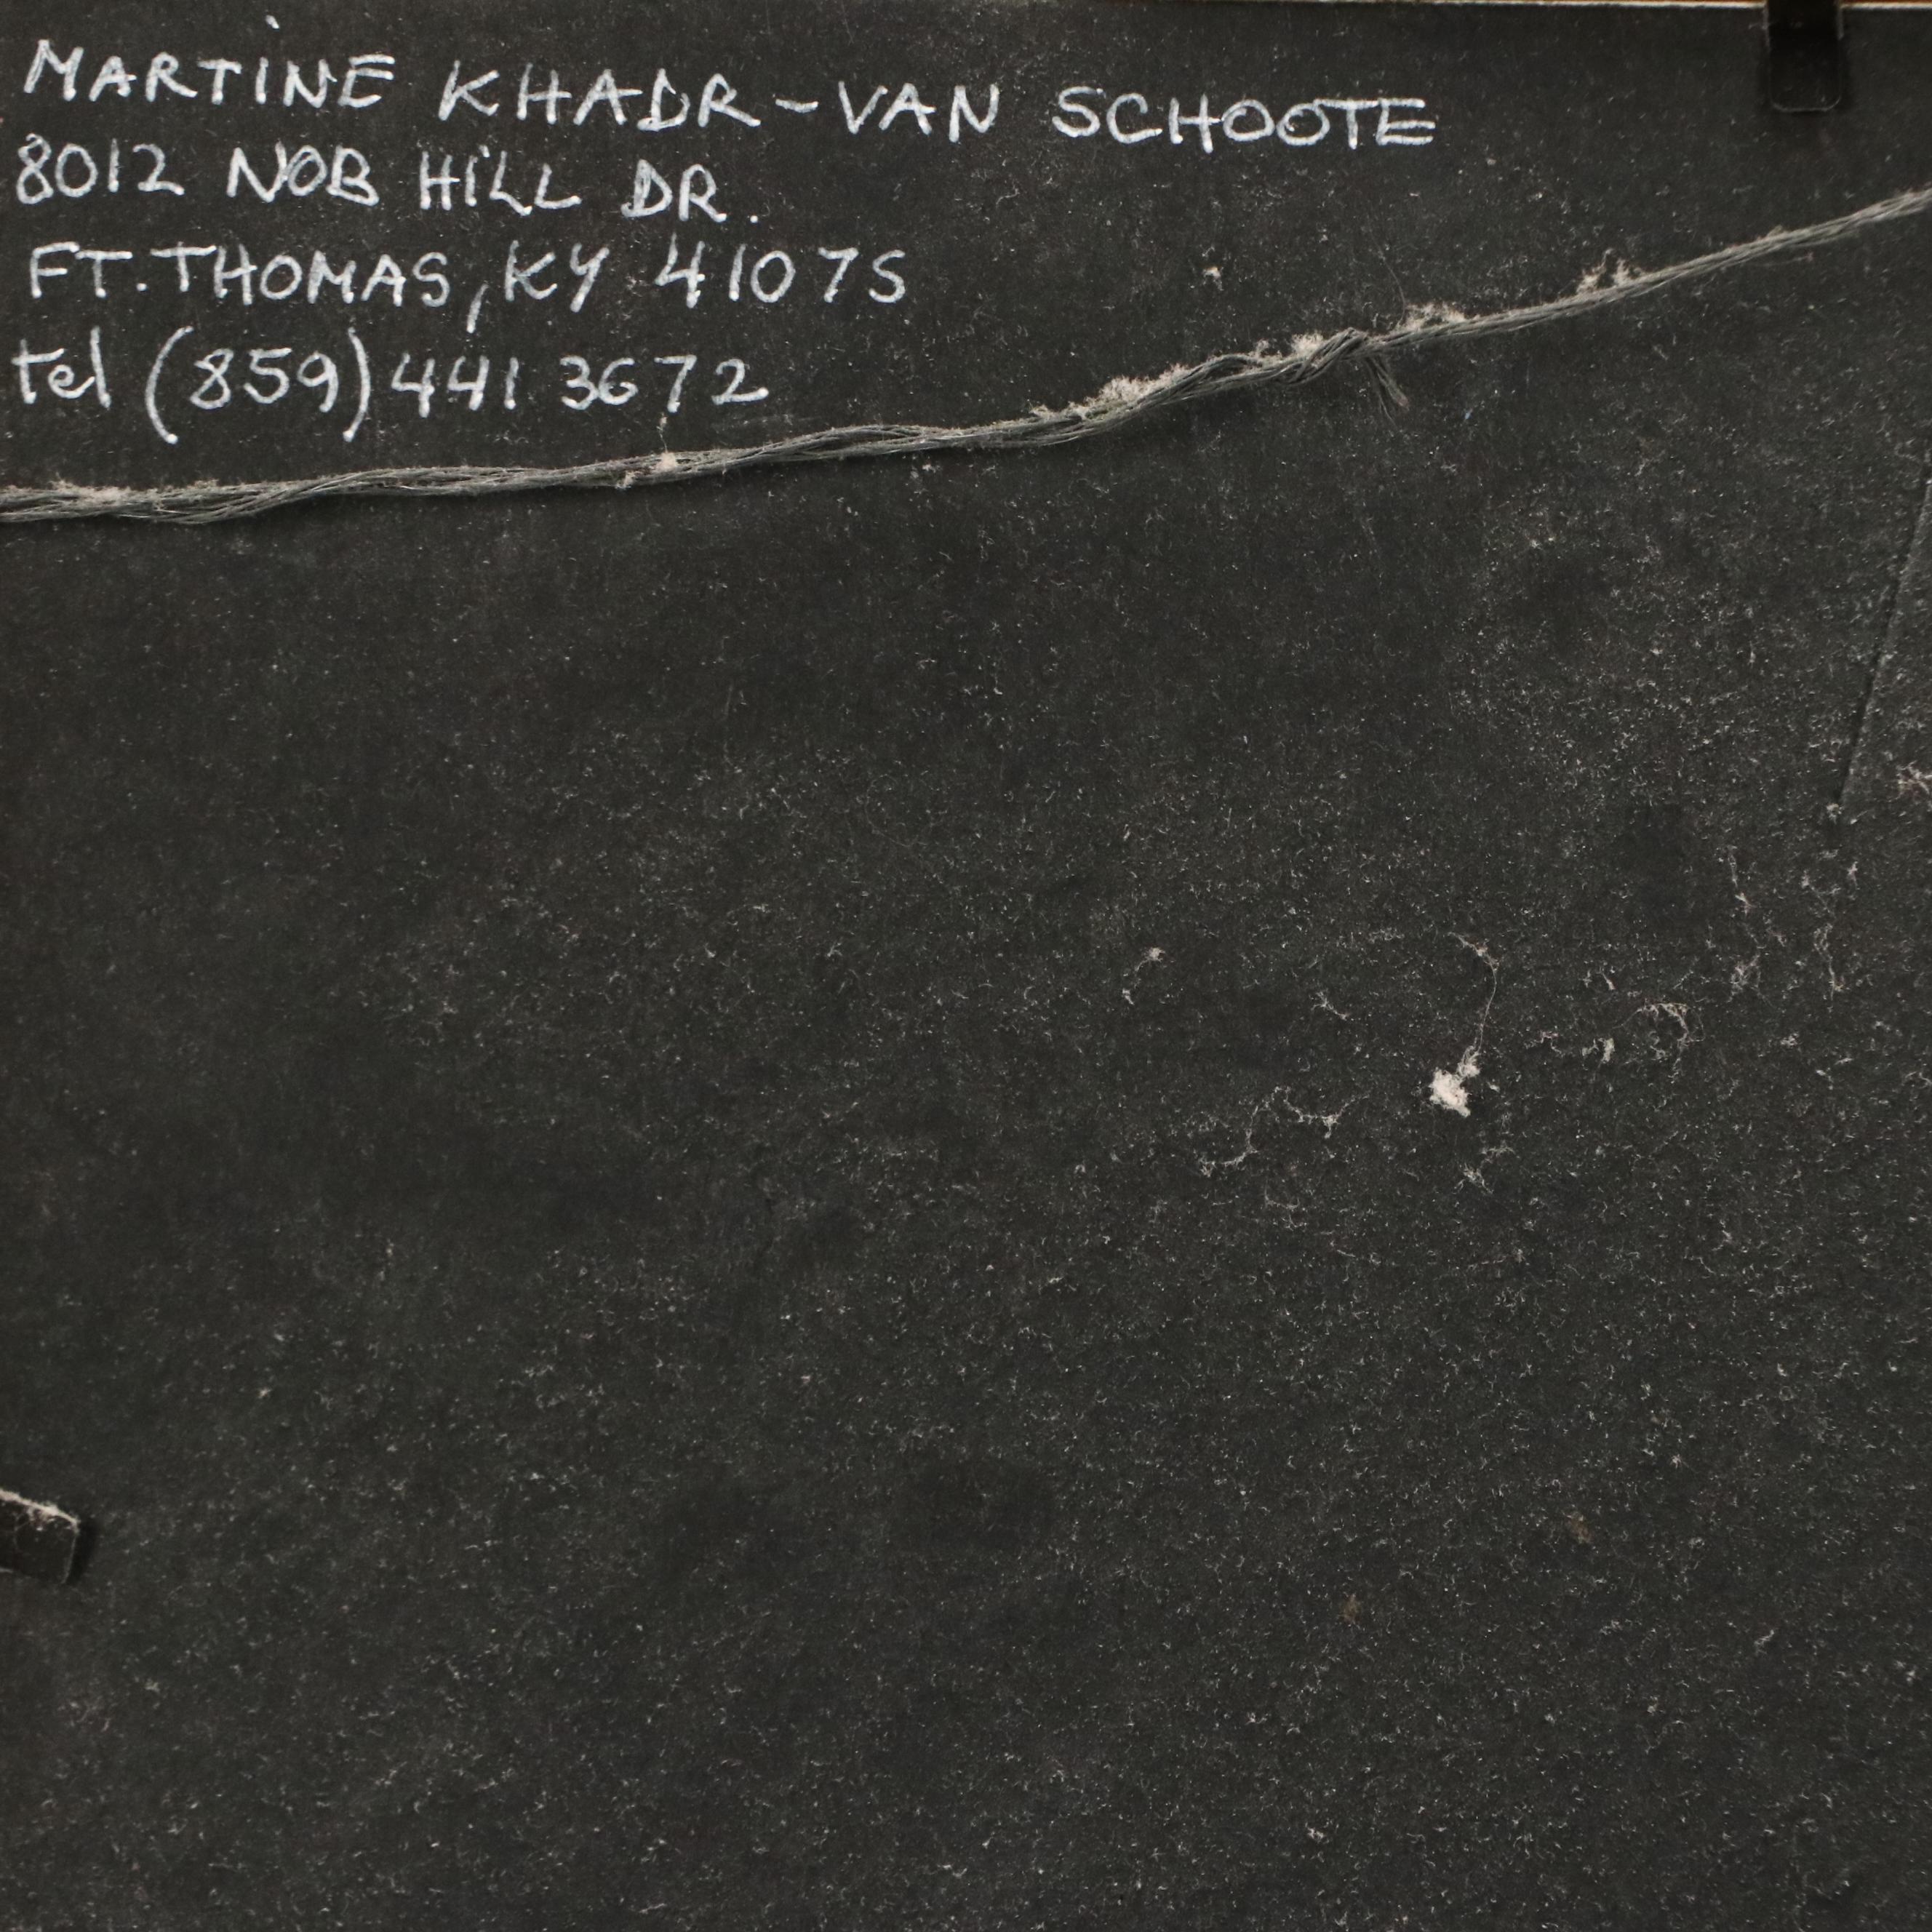 MARTINE KHADR-VAN SCHOOTE
8012 NOB HILL DR.
FT. THOMAS, KY 41075
tel (859) 441 3672